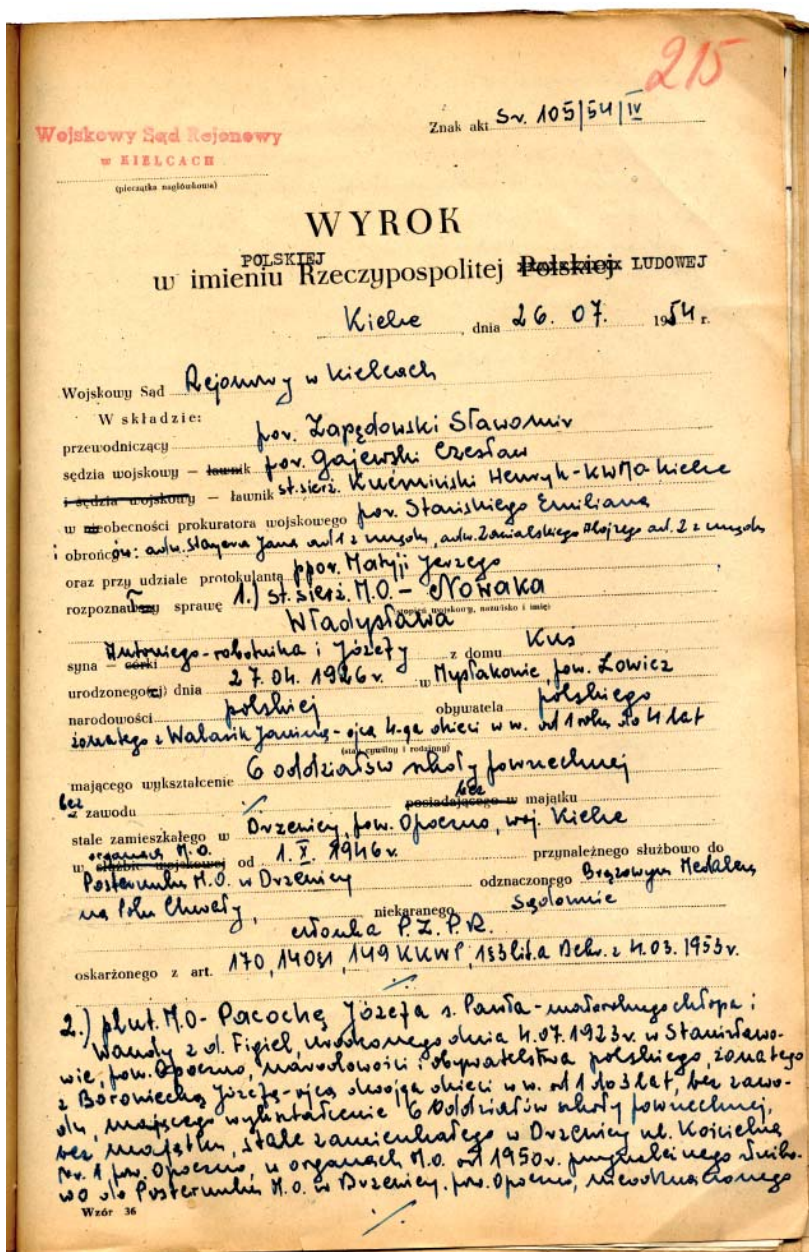 215
Znak akt Sr. 105/54/IV
Wojskowy Sąd Rejonowy
w KIELCACH
(pieczątka nagłówkowa)
WYROK
POLSKIEJ
w imieniu Rzeczypospolitej Polskiej LUDOWEJ
Kielce, dnia 26. 07. 1954 r.
Wojskowy Sąd Rejonowy w Kielcach
W składzie:
przewodniczący por. Zapędowski Sławomir
sędzia wojskowy — ławnik por. Gajewski Czesław
i sędzia wojskowy — ławnik st. sierż. Kuźmiński Henryk - KWMO Kielce
w nieobecności prokuratora wojskowego por. Stańskiego Emiliana
i obrońców: adw. Stayera Jana osk 1 z urzędu, adw. Alojzego osk. 2 z urzędu
oraz przy udziale protokulanta ppor. Matyji Jerzego
rozpoznawszy sprawę 1.) st. sierż. M.O. - Nowaka
(stopień wojskowy, nazwisko i imię)
Władysława
syna — córki Antoniego - robotnika i Józefy z domu Kuś
urodzonego(ej) dnia 27. 04. 1926 r. w Mysłakowie, pow. Łowicz
narodowości polskiej obywatela polskiego
żonatego z Walasik Janiną - ojca 4-ga dzieci w w. od 1 roku do 4 lat
(stan cywilny i rodzinny)
mającego wykształcenie 6 oddziałów szkoły powszechnej
bez z zawodu posiadającego w bez majątku
stale zamieszkałego w Drzewicy, pow. Opoczno, woj. Kielce
organach M.O.
w służbie wojskowej od 1. X. 1946 r. przynależnego służbowo do
Posterunku M.O. w Drzewicy odznaczonego Brązowym Medalem
na Polu Chwały, niekaranego sądownie
członka P.Z.P.R.
oskarżonego z art. 170, 140§1, 149 KKWP, 1§3 lit. a Dekr. z 4. 03. 1953 r.
2.) plut. M.O - Pacochę Józefa s. Pawła - małorolnego chłopa i
Wandy z d. Figiel, urodzonego dnia 4. 07. 1923 r. w Stanisławo-
wie, pow. Opoczno, narodowości i obywatelstwa polskiego, żonatego
z Boroniecką Józefą - ojca dwojga dzieci w w. od 1 do 3 lat, bez zawo-
du, mającego wykształcenie 6 oddziałów szkoły powszechnej,
bez majątku, stale zamieszkałego w Drzewicy ul. Kościelna
Nr. 1 pow. Opoczno, w organach M.O. od 1950 r. przynależnego służbo-
wo do Posterunku M.O. w Drzewicy. pow. Opoczno, nieodznaczonego
Wzór 36